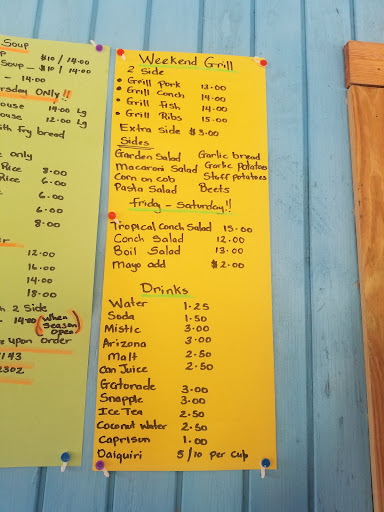 Soup
$10 / 14.00
Soup - $10 / 14.00
- 14.00
Only !!
ouse 14.00 Lg
ouse 12.00 Lg
ith fry bread
only
Rice 8.00
Rice 6.00
6.00
6.00
8.00
12.00
16.00
14.00
18.00
2 Side
- 14.00 (When Season Open)
upon Order
Weekend Grill
2 Side
• Grill Pork 13.00
• Grill Conch 14.00
• Grill Fish 14.00
• Grill Ribs 15.00
Extra Side $3.00
Sides
Garden Salad Garlic bread
Macaroni Salad Garlic Potatoes
Corn on cob Stuff potatoes
Pasta Salad Beets
Friday - Saturday!!
Tropical Conch Salad 15.00
Conch Salad 12.00
Boil Salad 13.00
Mayo add $2.00
Drinks
Water 1.25
Soda 1.50
Mistic 3.00
Arizona 3.00
Malt 2.50
Can Juice 2.50
Gatorade 3.00
Snapple 3.00
Ice Tea 2.50
Coconut Water 2.50
Caprison 1.00
Daiquiri 5/10 per cup